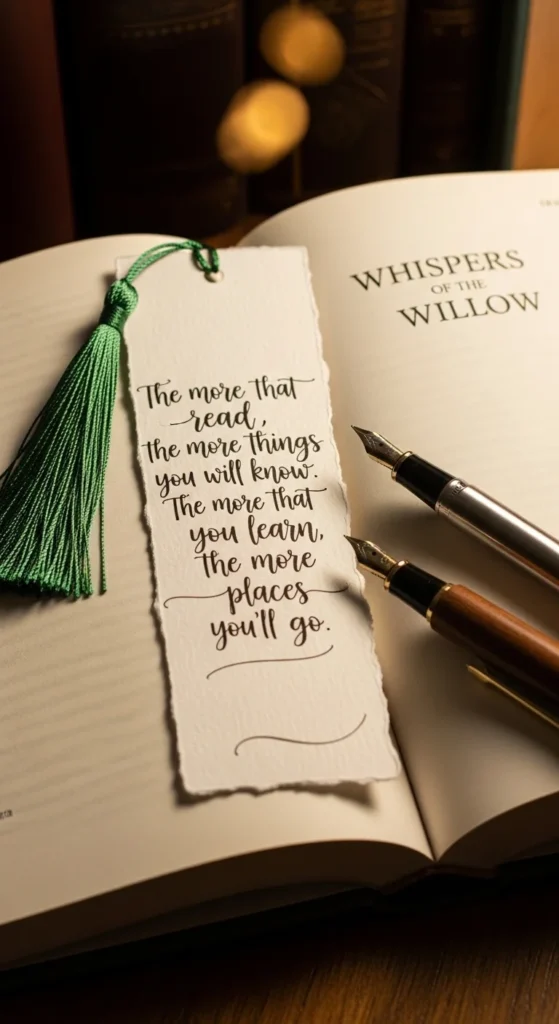 The more that
read,
the more things
you will know.
The more that
you learn,
the more
places
you'll go.
WHISPERS
OF THE
WILLOW